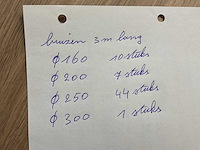 buizen 3m lang
φ 160 10 stuks
φ 200 7 stuks
φ 250 44 stuks
φ 300 1 stuks